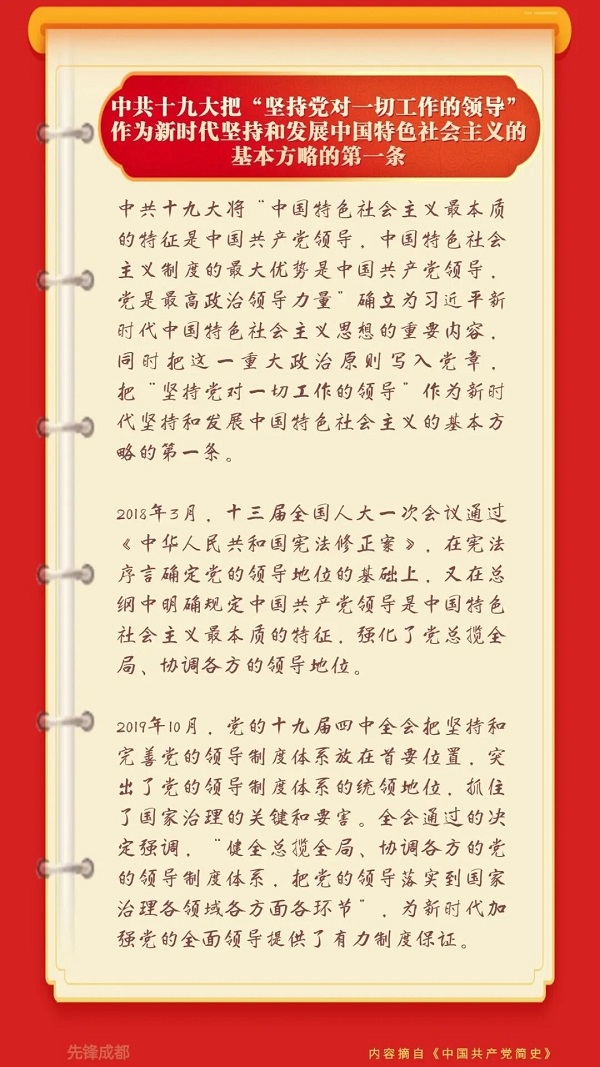 中共十九大把“坚持党对一切工作的领导”
作为新时代坚持和发展中国特色社会主义的
基本方略的第一条
中共十九大将“中国特色社会主义最本质
的特征是中国共产党领导，中国特色社会
主义制度的最大优势是中国共产党领导，
党是最高政治领导力量”确立为习近平新
时代中国特色社会主义思想的重要内容，
同时把这一重大政治原则写入党章，
把“坚持党对一切工作的领导”作为新时
代坚持和发展中国特色社会主义的基本方
略的第一条。
2018年3月，十三届全国人大一次会议通过
《中华人民共和国宪法修正案》，在宪法
序言确定党的领导地位的基础上，又在总
纲中明确规定中国共产党领导是中国特色
社会主义最本质的特征，强化了党总揽全
局、协调各方的领导地位。
2019年10月，党的十九届四中全会把坚持和
完善党的领导制度体系放在首要位置，突
出了党的领导制度体系的统领地位，抓住
了国家治理的关键和要害。全会通过的决
定强调，“健全总揽全局、协调各方的党
的领导制度体系，把党的领导落实到国家
治理各领域各方面各环节”，为新时代加
强党的全面领导提供了有力制度保证。
先锋成都
内容摘自《中国共产党简史》